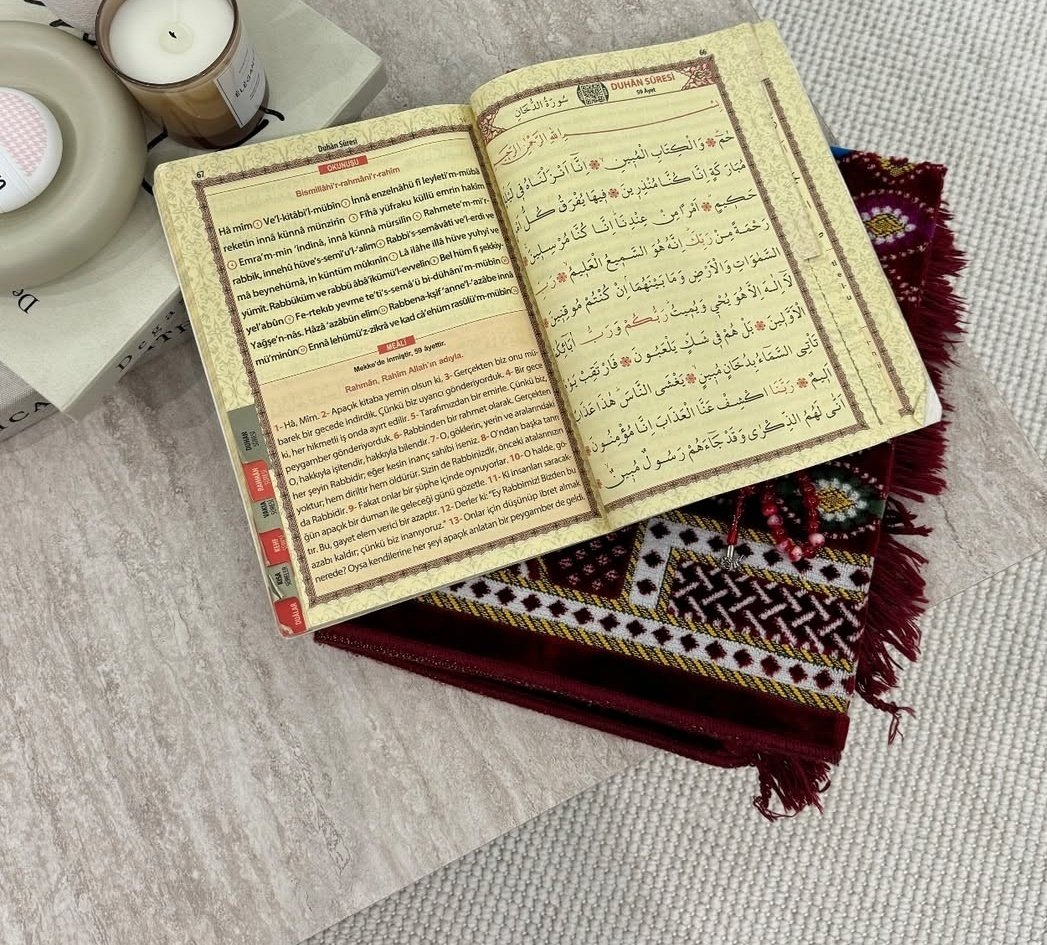 ÉLÉGAN
67
Duhân Sûresi
OKUNUŞU
Bismillâhi'r-rahmâni'r-rahîm
Hâ mîm① Ve'l-kitâbi'l-mübîn② İnnâ enzelnâhü fî leyleti'm-mübâ
reketin innâ künnâ münzirîn ③ Fîhâ yüfraku küllü emrin hakîm
④ Emra'm-min 'indinâ, innâ künnâ mürsilîn ⑤ Rahmete'm-mi'r-
rabbik, innehû hüve's-semî'u'l-'alîm⑥ Rabbi's-semâvâti ve'l-erdı ve
mâ beynehümâ, in küntüm mûkınîn ⑦ Lâ ilâhe illâ hüve yuhyî ve
yümît. Rabbüküm ve rabbü âbâikümü'l-evvelîn⑧ Bel hüm fî şekkiy-
yel'abûn⑨ Fe-rtekıb yevme te'ti's-semâ'ü bi-dühâni'm-mübîn⑩
Yağşe'n-nâs. Hâzâ 'azâbün elîm⑪ Rabbena-kşif 'anne'l-'azâbe innâ
mü'minûn⑫ Ennâ lehümü'z-zikrâ ve kad câ'ehüm rasûlü'm-mübîn⑬
MEÂLİ
Mekke'de inmiştir. 59 âyettir.
Rahmân, Rahîm Allah'ın adıyla.
1- Hâ, Mîm. 2- Apaçık kitaba yemin olsun ki, 3- Gerçekten biz onu mü-
barek bir gecede indirdik. Çünkü biz uyarıcı gönderiyorduk. 4- Bir gece
ki, her hikmetli iş onda ayırt edilir. 5- Tarafımızdan bir emirle. Çünkü biz,
peygamber gönderiyorduk. 6- Rabbinden bir rahmet olarak. Gerçekten
O, hakkıyla işitendir, hakkıyla bilendir. 7- O, göklerin, yerin ve aralarındaki
her şeyin Rabbidir; eğer kesin inanç sahibi iseniz. 8- O'ndan başka tanrı
yoktur; hem diriltir hem öldürür. Sizin de Rabbinizdir, önceki atalarınızın
da Rabbidir. 9- Fakat onlar bir şüphe içinde oynuyorlar. 10- O halde, gö-
ğün apaçık bir duman ile geleceği günü gözetle. 11- Ki insanları saracak-
tır. Bu, gayet elem verici bir azaptır. 12- Derler ki: "Ey Rabbimiz! Bizden bu
azabı kaldır; çünkü biz inanıyoruz." 13- Onlar için düşünüp ibret almak
nerede? Oysa kendilerine her şeyi apaçık anlatan bir peygamber de geldi.
DUHÂN SÛRESİ
RAHMÂN SÛRESİ
VÂKIA SÛRESİ
KEHF SÛRESİ
KISA SÛRELER
DUÂLAR
66
DUHÂN SÛRESİ
59 Âyet
سُورَةُ الدُّخَانِ
بِسْمِ اللّٰهِ الرَّحْمٰنِ الرَّحِيمِ
حٰمٓ ۞ وَالْكِتَابِ الْمُبِينِ ۞ اِنَّٓا اَنْزَلْنَاهُ فِي
مُبَارَكَةٍ اِنَّا كُنَّا مُنْذِرِينَ ۞ فِيهَا يُفْرَقُ كُلُّ
حَكِيمٍ ۞ اَمْرًا مِنْ عِنْدِنَا اِنَّا كُنَّا مُرْسِلِينَ
رَحْمَةً مِنْ رَبِّكَ اِنَّهُ هُوَ السَّمِيعُ الْعَلِيمُ ۞
السَّمٰوَاتِ وَالْاَرْضِ وَمَا بَيْنَهُمَا اِنْ كُنْتُمْ مُوقِنِينَ
لَٓا اِلٰهَ اِلَّا هُوَ يُحْيِي وَيُمِيتُ رَبُّكُمْ وَرَبُّ اٰبَٓائِكُمُ
الْاَوَّلِينَ ۞ بَلْ هُمْ فِي شَكٍّ يَلْعَبُونَ ۞ فَارْتَقِبْ
تَأْتِي السَّمَٓاءُ بِدُخَانٍ مُبِينٍ ۞ يَغْشَى النَّاسَ هٰذَا عَذَابٌ
اَلِيمٌ ۞ رَبَّنَا اكْشِفْ عَنَّا الْعَذَابَ اِنَّا مُؤْمِنُونَ
اَنّٰى لَهُمُ الذِّكْرٰى وَقَدْ جَٓاءَهُمْ رَسُولٌ مُبِينٌ